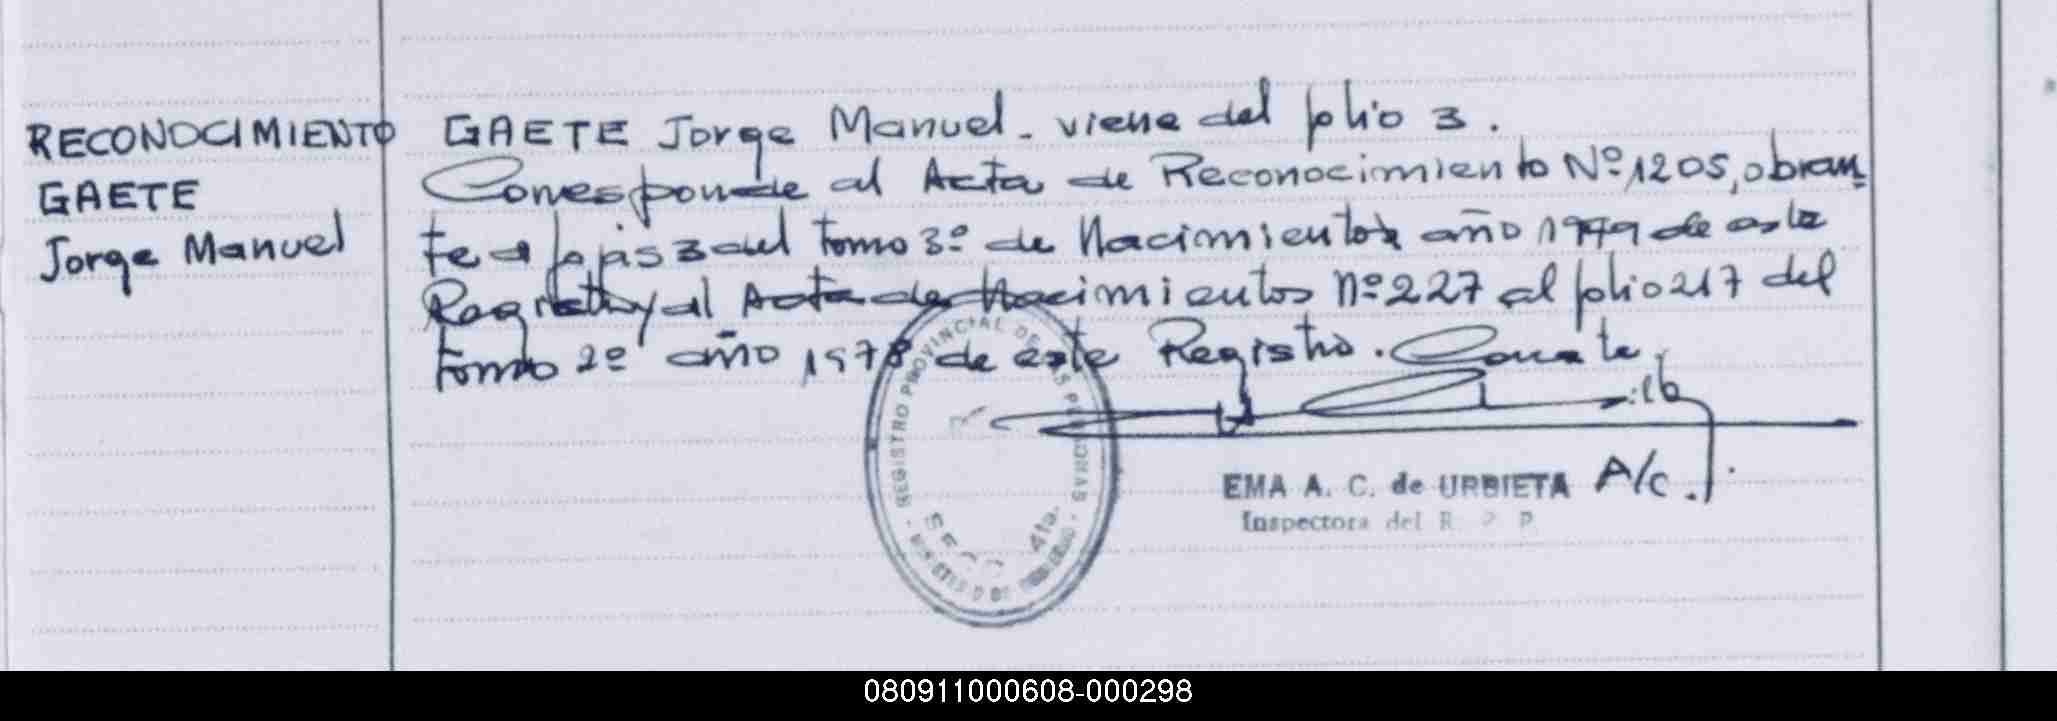 RECONOCIMIENTO
GAETE
Jorge Manuel
GAETE Jorge Manuel - viene del folio 3.
Corresponde al Acta de Reconocimiento Nº 1205, obran-
te a fojas 3 del tomo 3º de Nacimientos año 1979 de este
Registro y al Acta de Nacimientos nº 227 al folio 217 del
tomo 2º año 1978 de este Registro. Conste.
REGISTRO PROVINCIAL DE LAS PERSONAS
SECC 4ta.
MINISTERIO DE GOBIERNO
EMA A. C. de URBIETA A/C.
Inspectora del R. P. P.
080911000608-000298